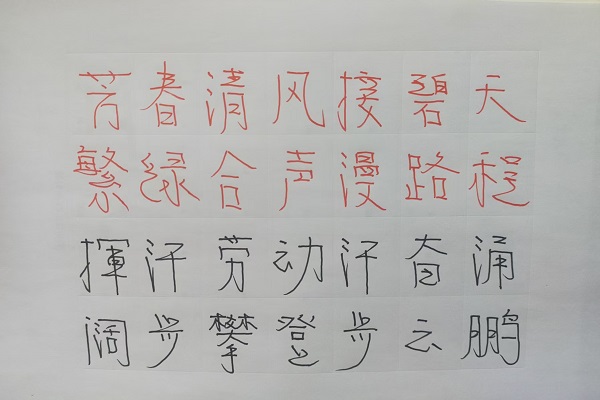 芳春清风接碧天
繁绿合声漫路程
揮汗劳动汗奋涌
阔步攀登步云鹏